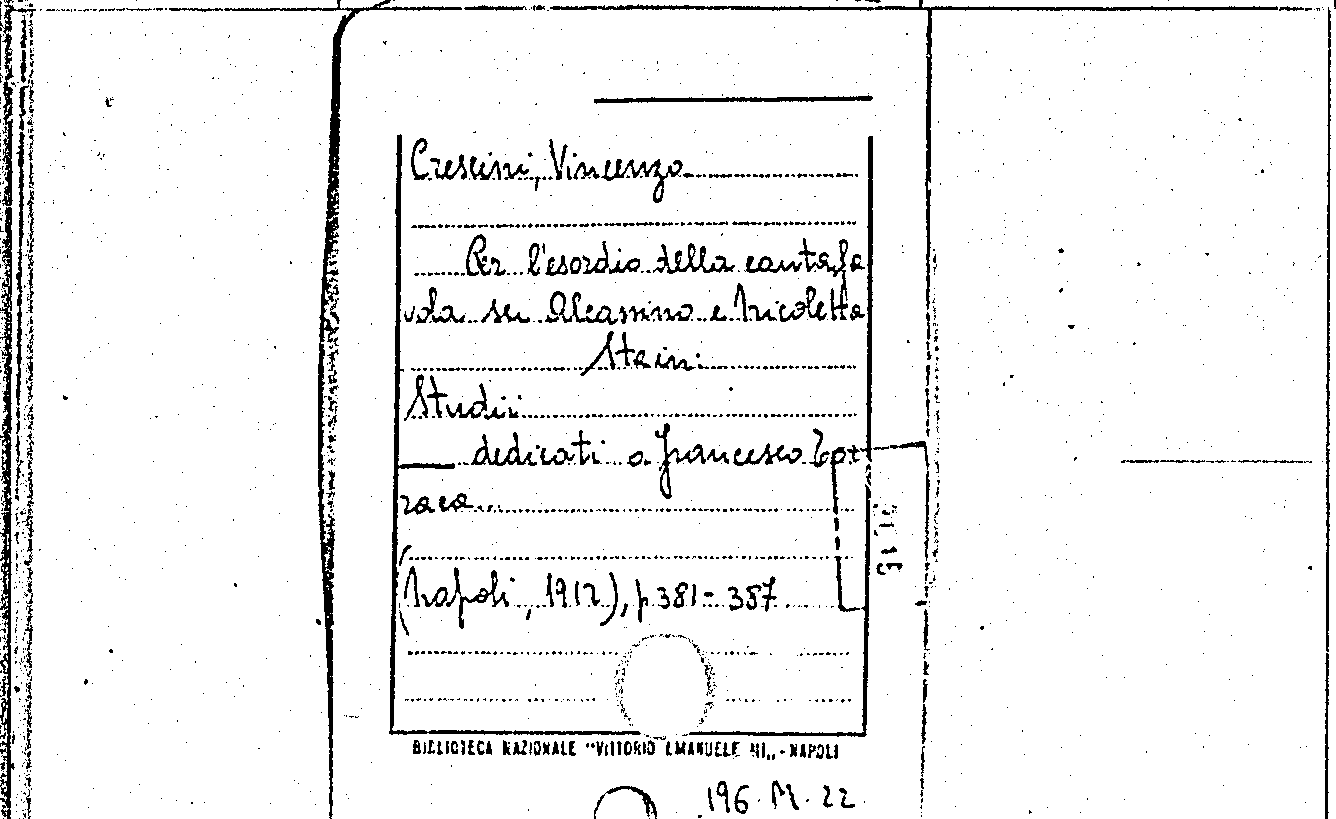 Crescini, Vincenzo
Per l'esordio della cantafa
vola su Alcassino e Nicoletta
Sta in:
Studii
dedicati a Francesco Tor
raca...
(Napoli, 1912), p 381-387.
BIBLIOTECA NAZIONALE "VITTORIO EMANUELE III„ - NAPOLI
196. M. 22